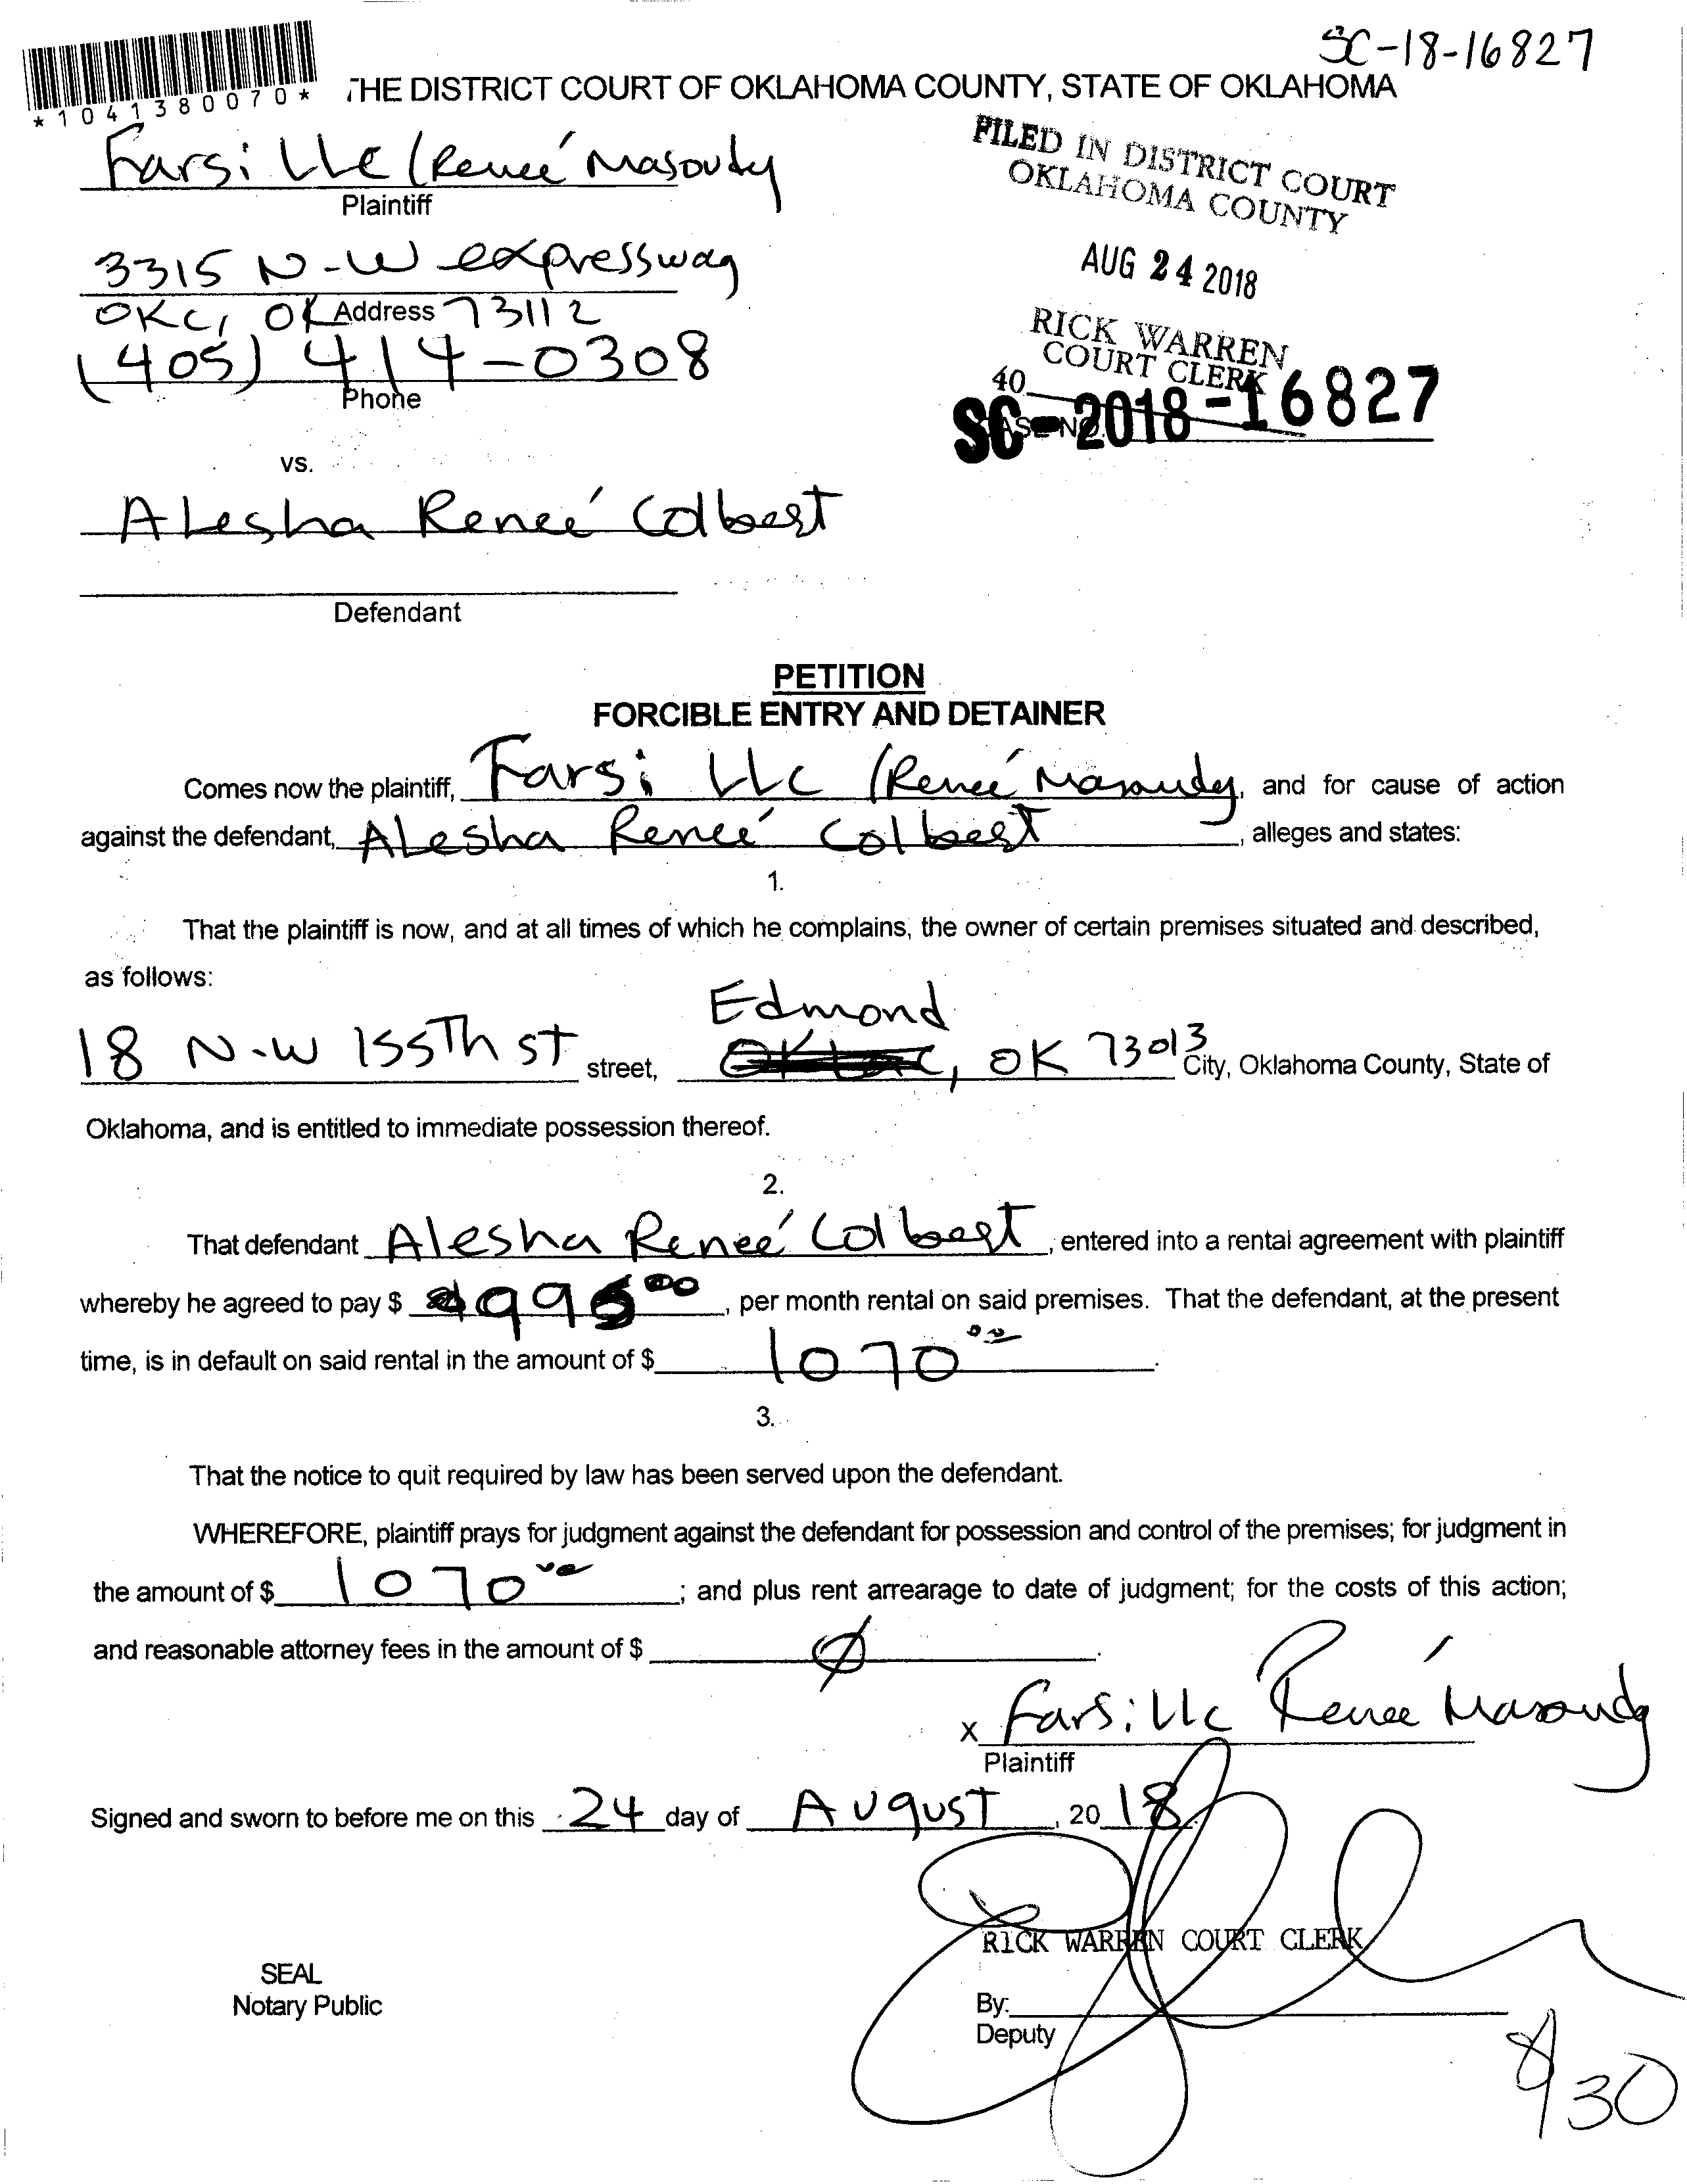 SC-18-16827
*1041380070*
THE DISTRICT COURT OF OKLAHOMA COUNTY, STATE OF OKLAHOMA
Farsi LLC (Reneé Masoudy
Plaintiff
FILED IN DISTRICT COURT
OKLAHOMA COUNTY
3315 N-W expressway
AUG 24 2018
OKC, OK Address 73112
RICK WARREN
COURT CLERK
(405) 414-0308
Phone
40
SC-2018-16827
CASE NO.
vs.
Alesha Reneé Colbert
Defendant
PETITION
FORCIBLE ENTRY AND DETAINER
Comes now the plaintiff, Farsi LLC (Reneé Masoudy, and for cause of action
against the defendant, Alesha Reneé Colbert, alleges and states:
1.
That the plaintiff is now, and at all times of which he complains, the owner of certain premises situated and described,
as follows:
Edmond
18 N-W 155Th st street, , OK 73013 City, Oklahoma County, State of
Oklahoma, and is entitled to immediate possession thereof.
2.
That defendant Alesha Reneé Colbert, entered into a rental agreement with plaintiff
whereby he agreed to pay $ 995 00, per month rental on said premises. That the defendant, at the present
time, is in default on said rental in the amount of $ 1070 00.
3.
That the notice to quit required by law has been served upon the defendant.
WHEREFORE, plaintiff prays for judgment against the defendant for possession and control of the premises; for judgment in
the amount of $ 1070 00; and plus rent arrearage to date of judgment; for the costs of this action;
and reasonable attorney fees in the amount of $ Ø.
X Farsi LLC Reneé Masoudy
Plaintiff
Signed and sworn to before me on this 24 day of August, 2018.
RICK WARREN COURT CLERK
SEAL
Notary Public
By:
Deputy
8/30